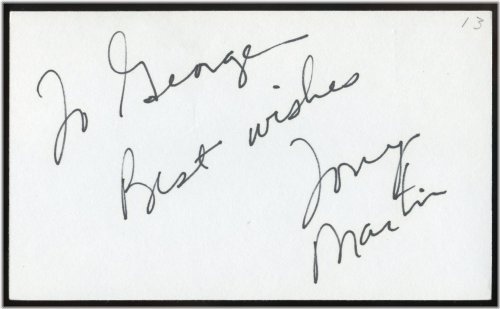 13
To George
Best wishes
Tony
Martin